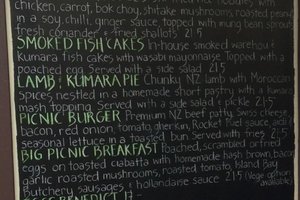 chicken, carrot, bok choy, shitake mushrooms, roasted peanut
in a soy, chilli, ginger sauce, topped with mung bean sprouts
fresh coriander & fried shallots 21.5
SMOKED FISH CAKES In-house smoked warehou &
Kumara fish cakes with wasabi mayonnaise. Topped with a
poached egg. Served with a side salad 21.5
LAMB & KUMARA PIE Chunky NZ lamb with Moroccan
Spices, nestled in a homemade short pastry with a kumara
mash topping. Served with a side salad & pickle 21.5
PICNIC BURGER Premium NZ beef patty, Swiss cheese,
bacon, red onion, tomato, gherkin, Rocket Fuel sauce, aioli &
seasonal lettuce in a toasted bun. Served with fries 21.5
BIG PICNIC BREAKFAST Poached, scrambled or fried
eggs on toasted ciabatta with homemade hash brown, bacon,
garlic roasted mushrooms, roasted tomato, Island Bay
Butchery sausages & hollandaise sauce 21.5 (Vege option
available)
EGGS BENEDICT